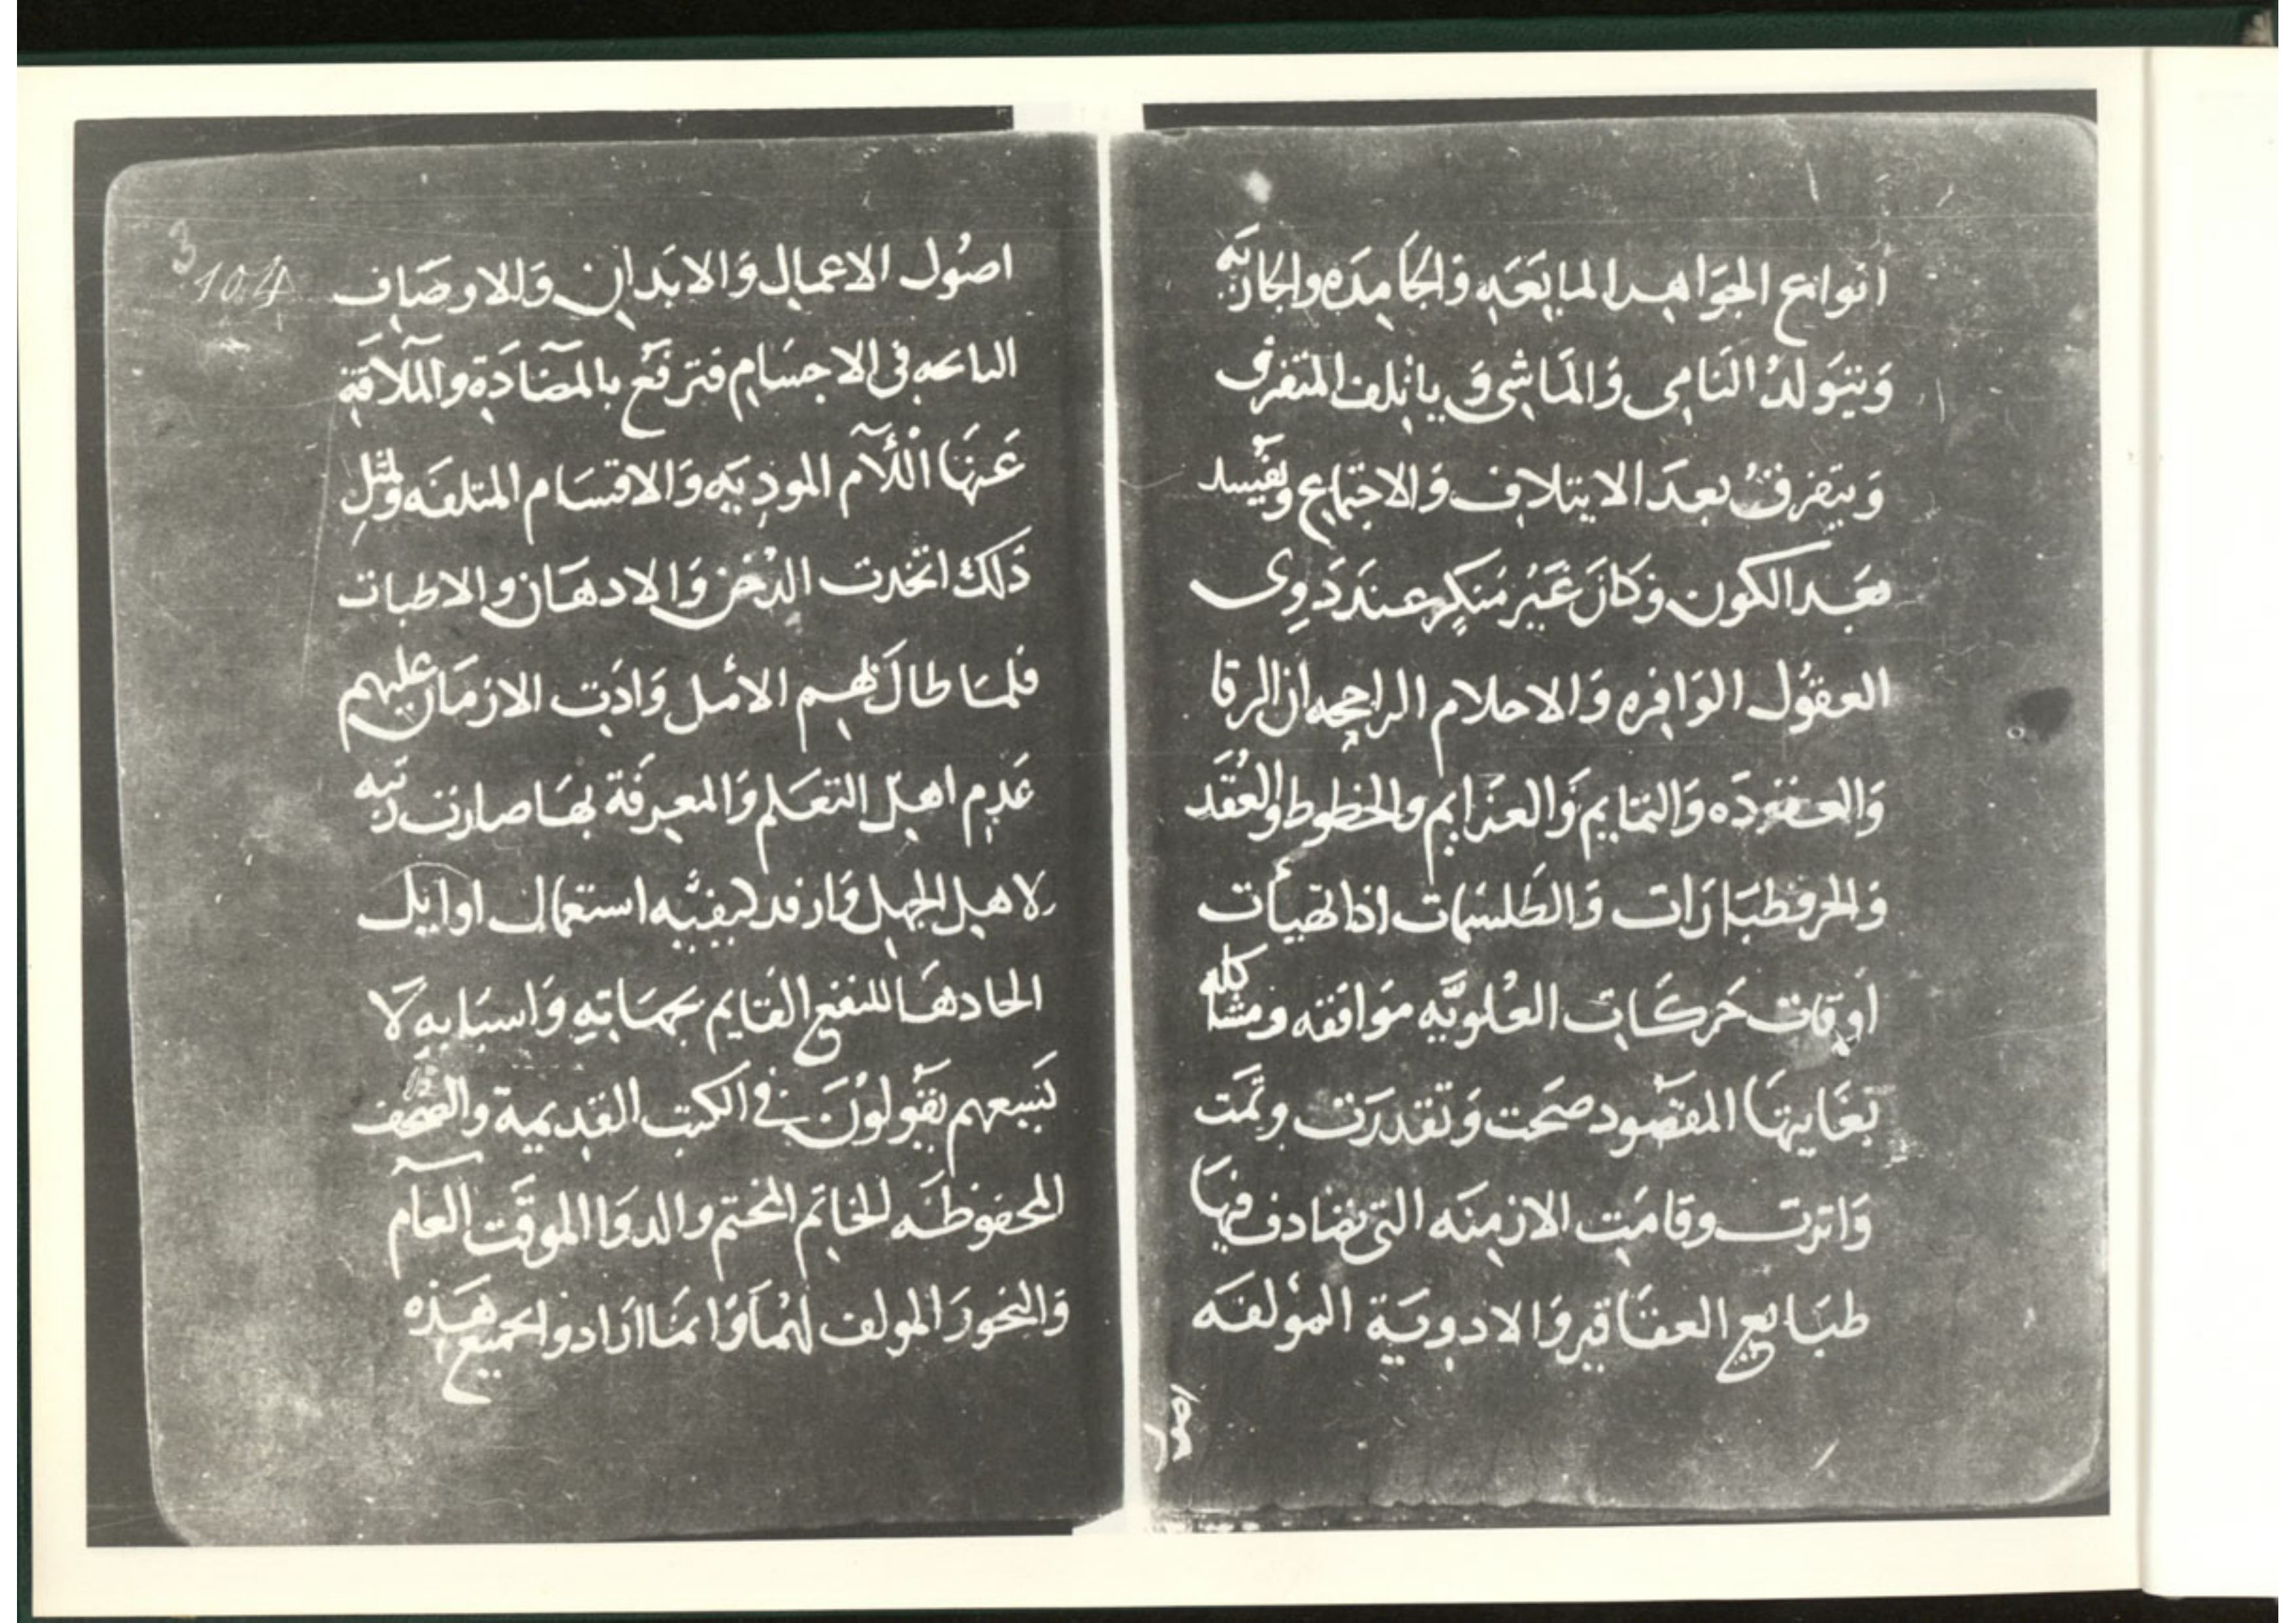 انواع الجَوَاهِر المايَعَهِ وَالجَامِدَه والجاريَه
وَيَتَوَلدُ النَامِى وَالمَاشِى وَ ياتلف المتفرق
وَيتفرقُ بعدَ الايتلاف وَالاجتماع ويفسد
بعَد الكون وَكانَ غَيْر مُنكَرٍ عندَ ذَوِى
العقوُل الوَافِره وَالاحلام الراجحه ان الرقا
وَالعقودَه وَالتمَايِم وَالعزايم والخطوط والعُقَد
وَالطَلسمات اذا تهيأت
اَوقات حَركَات العُلويَّه موَافقه ومشاكله
بغَايتهَا المقصُود صَحت وَتقدرَت وتمَت
وَاثرت وقامَت الازمِنَه التى تضادف فيهَا
طبَايع العقَاقير وَالادوِيَة المؤلفَه
3
104
اصُول الاعمال وَالابَدان وَللاوصَاف
فى الاجسَام فترفَع بالمضَادَةِ والملَاقَةِ
عَنهَا اللآم الموديَهِ وَالاقسَام المتلفَه ولمثل
ذَلكَ اتخدت الدُخن وَالادهَان والاطبات
فلمَا طالَ بهِم الامُل وَادَت الازمَان عليهم
عَدِم اهِل التعَلم وَالمعِرفَة بهَا صارت
لاهِل الجهِل كيفيَّه استعمال اوايل
للنفع القَايم بجهَاتِهِ وَاسبَابِهِ لَا
يقَوُلونَ في الكتب القدِيمة والصحُف
المحفوظَه للخاتَم المختم والدوَا الموقَت العَام
وَالبخورَ المولف لهُمَا وَانمَا اَرَادوا بجميع هَذه